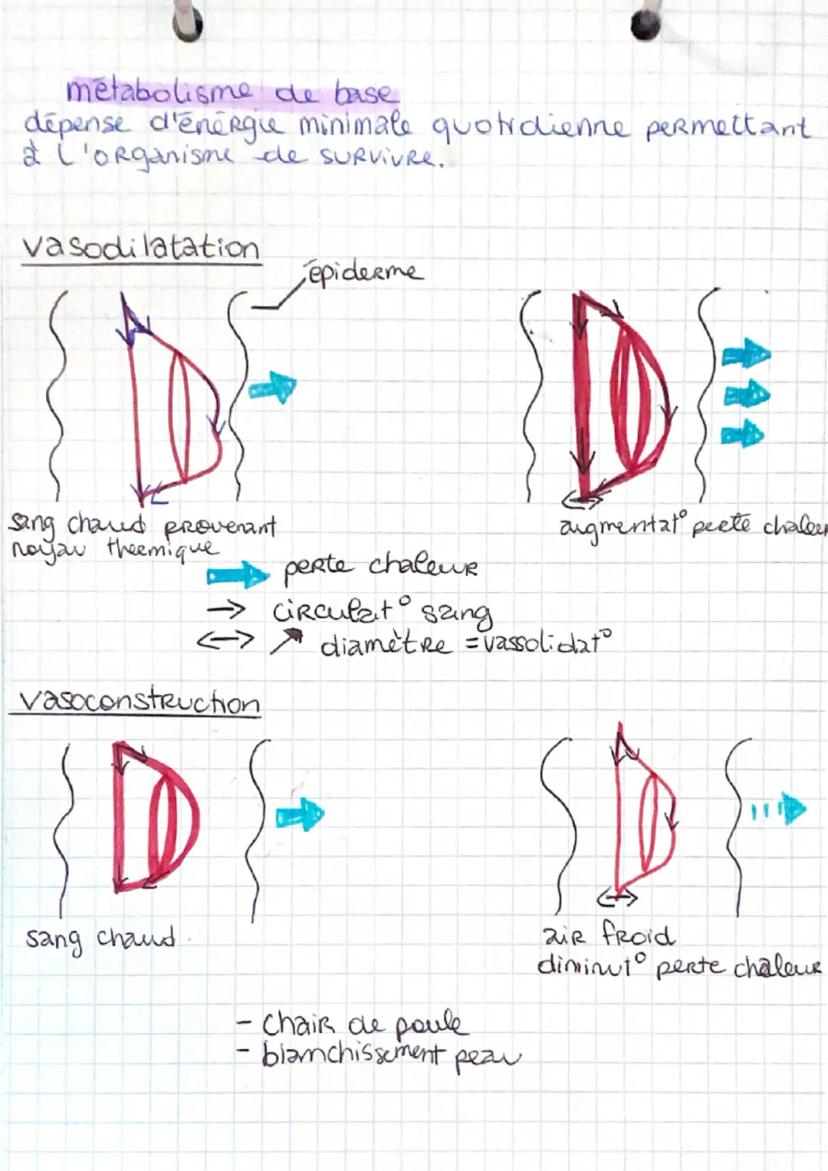 métabolisme de base
dépense d'énergie minimale quotidienne permettant
à l'organisme de survivre.
vasodilatation
épiderme
sang chaud provenant
noyau thermique
augmentat° perte chaleur
perte chaleur
→ circulat° sang
↔ ↗ diamètre = vassolidat°
vasoconstruction
sang chaud
air froid
diminut° perte chaleur
- chair de poule
- blanchissement peau